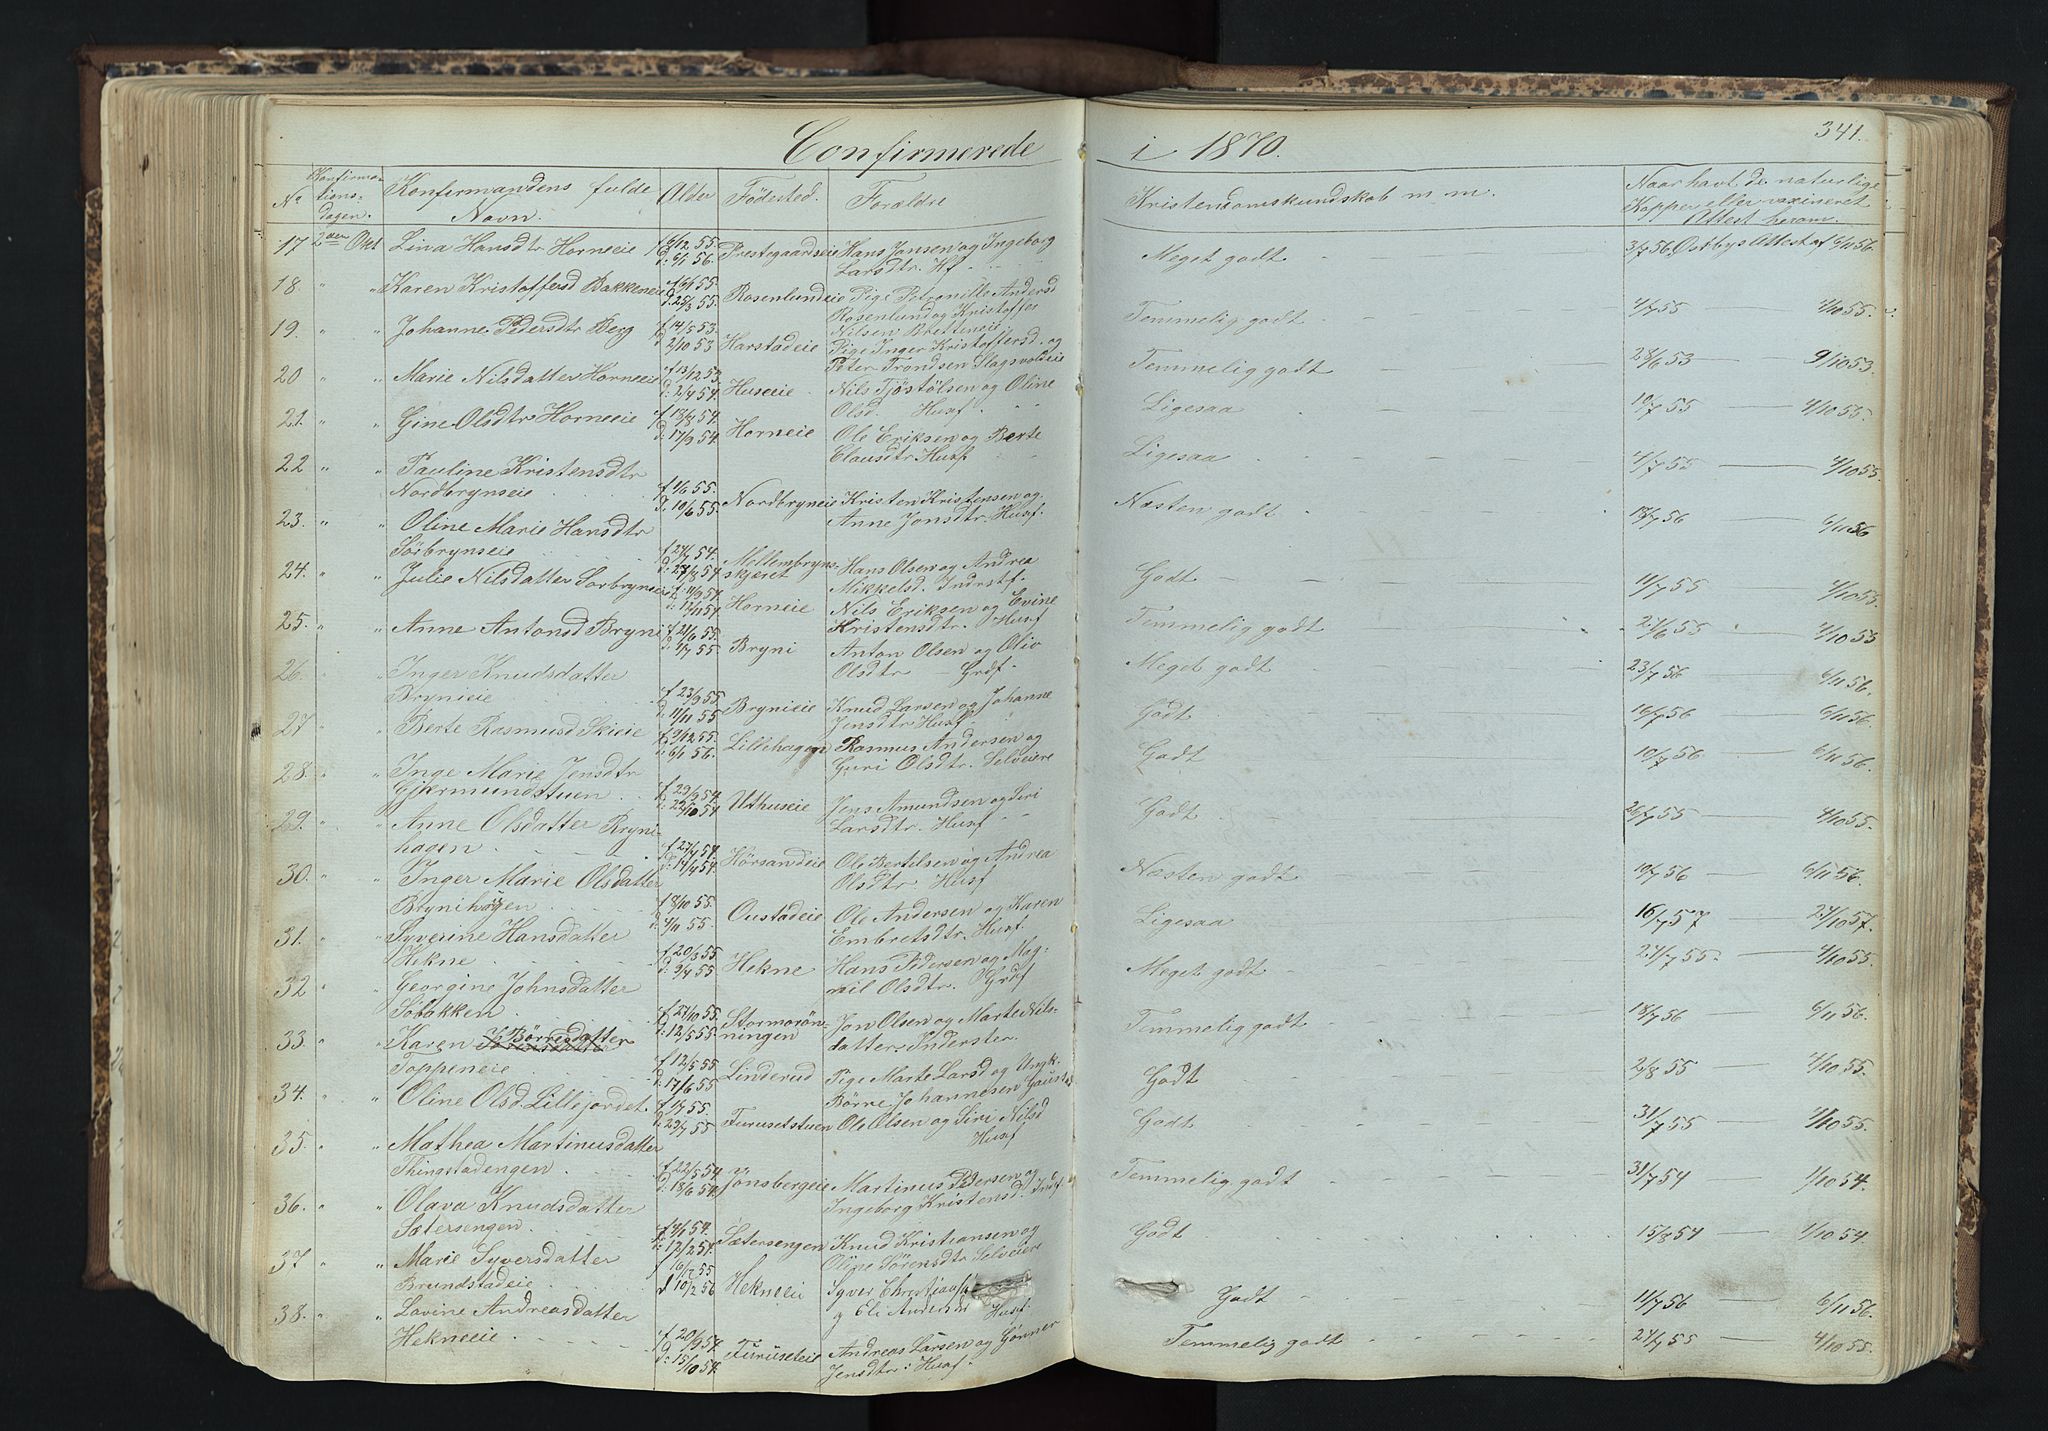 Confirmerede i 1870.
341.
No Konfirmationsdagen. Konfermandens fulde Navn. Alder Födested. Forældre Kristendomskundskab m. m. Naar havt de naturlige Kopper eller vaxineret Attest herom.
17 2den Okt Lina Hansdtr Horneeie f 16/12 55. d: 6/1 56. Prestegaardseie Hans Jansen og Ingeborg Larsdtr. Hf Meget godt 3/7 56. Østbys Attest af 6/11 56.
18. " " Karen Kristoffersd Bakkeneie 55 d: 25/3 55. Rosenlundeie Pige Petronille Andersd Rosenlund og Kristoffer Nilsen Bratteneie Temmelig godt 4/7 55 4/10 55.
19. " " Johanne Pedersdtr Berg f 14/5 53. d 2/10 53 Harstadeie Pige Inger Kristoffersd. og Peter Trondsen Slagsvoldeie Temmelig godt 28/6 53 9/10 53.
20 " " Marie Nilsdatter Horneeie f 13/12 53. d: 2/4 54. Huseeie Nils Tjöstölsen og Oline Olsd. Husf. Ligesaa 10/7 55 4/10 55.
21. " " Gine Olsdtr Horneeie f 13/8 54. d: 17/9 54. Horneie Ole Eriksen og Berte Clausdtr Husf. Ligesaa 4/7 55 4/10 55.
22 " " Pauline Kristensdtr
Nordbrynseie f 1/6 55. d: 10/6 55. Nordbryneie Kristen Kristensen og Anne Jonsdtr. Husf. Næsten godt 18/7 56 6/11 56
23. " " Oline Marie Hansdtr
Sörbrynseie 54. d: 27/8 54 Mellembrynsskjæret Hans Olsen og Andrea Mikkelsd. Indrstf. Godt 11/7 55 4/10 55.
24. " " Julie Nilsdatter Sorbrynseie f 11/9 54. d: 12/11 54 Horneie Nils Eriksen og Evine Kristensdtr. Husf Temmelig godt 21/6 55 4/10 55
25. " " Anne Antonsd Bryni f 21/6 55. d: 4/7 55. Bryni Anton Olsen og Oliv Olsdtr Grdf. Meget godt 23/7 56 6/11 56.
26. " " Inger Knudsdatter
Brynieie f 23/9 55. d: 11/11 55 Brynieie Knud Larsen og Johanne Jensdtr Husf. Godt 16/7 56 6/11 56.
27 " " Berte Rasmusd Skieie 55. d: 6/1 56. Lillehagen Rasmus Andersen og Guri Olsdtr. Selveiere Godt 10/7 56 6/11 56.
28. " " Inge Marie Jensdtr
Gjermundstuen f 29/9 54. d: 22/10 54 Uthuseie Jens Amundsen og Siri Larsdtr. Husf Godt 26/7 55 4/10 55.
29. " " Anne Olsdatter Brynihagen f 54. d: 54. Hörsandeie Ole Bertelsen og Andrea Olsdtr. Husf Næsten godt 10/7 56 6/11 56.
30. " " Inger Marie Olsdatter
Brynihögen f 8/10 55. d: 4/11 55. Oustadeie Ole Andersen og Karen Embretsdtr. Husf. Ligesaa 16/7 57 27/10 57.
31. " " Syverine Hansdatter
Hekne f 20/3 55 d: 9/4 55 Hekne Hans Pedersen og Magnil Olsdtr. Grdf Meget godt 21/7 55. 4/10 55.
32 " " Georgine Johnsdatter
Söbakken f 55. d: 12/5 55 Stormorönningen Jon Olsen og Marte Nilsdatter. Inderster. Temmelig godt 18/7 56 6/11 56.
33. " " Karen Börresdatter
Toppeneie f 12/5 55 d: 17/6 55 Linderud Pige Marte Larsd og Ungk. Börre Johannesen Gaustad Godt 2/8 55 4/10 55.
34. " " Oline Olsd. Lillejordet f 1/7 55. d: 29/7 55 Furusetstuen Ole Olsen og Siri Nilsd Husf Godt 31/7 55 4/10 55.
35. " " Mathea Martinusdatter
Thingstadengen f 22/5 54 d: 18/6 54. Jönsbergeie Martinus Pedersen og Ingeborg Kristensd. Indf Temmelig godt 31/7 54 1/10 54.
36. " " Olava Knudsdatter
Sætersengen f 4/1 54. d: 12/2 54. Sætersengen Knud Kristiansen og Oline Sörensdtr Selveiere Godt 15/8 54 1/10 54.
37 " " Marie Syversdatter
Brundstadeie f 16/12 55 d 10/2 56 Hekneeie Syver og Eli Andersdtr Husf. Godt 11/7 56 6/11 56.
38. " " Lovine Andreasdatter
Hekneeie f 20/9 54. d: 15/10 54. Furuseteie Andreas Larsen og Gönner Jensdtr: Husf. Temmelig godt 24/7 55 4/10 55.